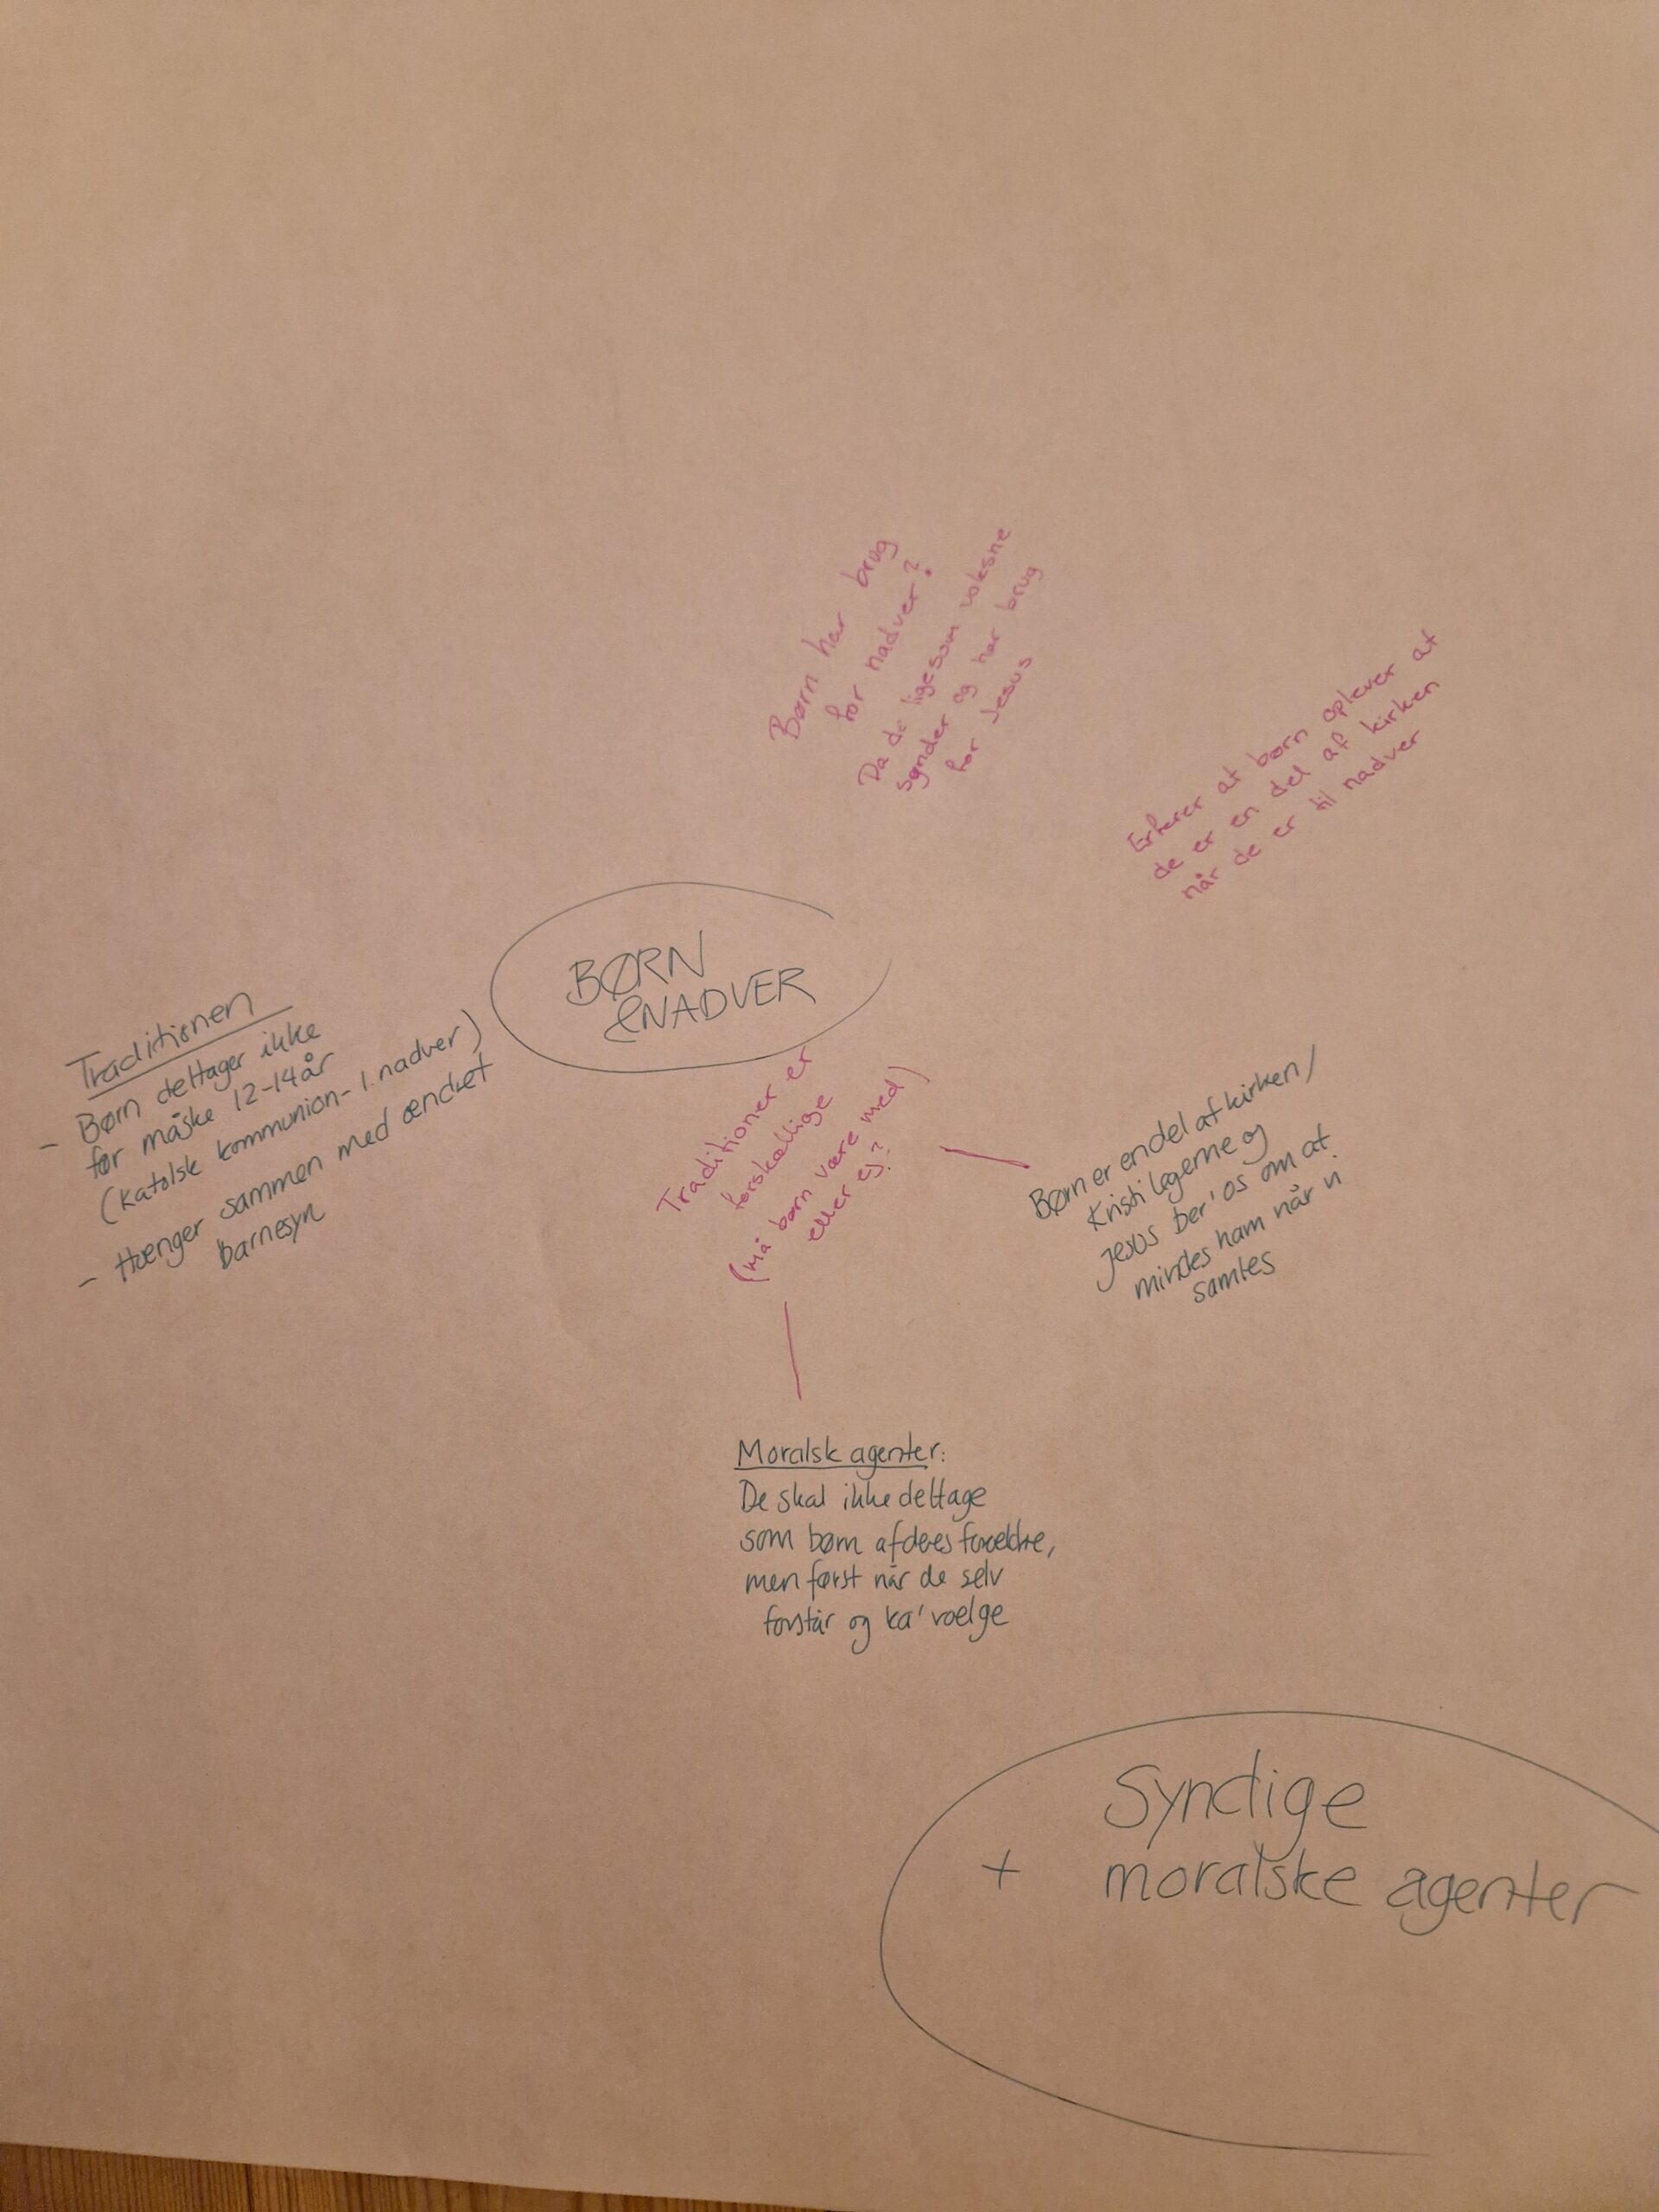 Børn har brug
for nadver?
Da de ligesom voksne
synder og har brug
for Jesus
Erfarer at børn oplever at
de er en del af kirken
når de er til nadver
BØRN
& NADVER
Traditionen
- Børn deltager ikke
før måske 12-14 år
(Katolsk kommunion - 1. nadver)
- Hænger sammen med ændret
barnesyn
Traditioner er
forskællige
(må børn være med)
eller ej?
Børn er en del af kirken /
Kristi legeme og
Jesus ber' os om at
mindes ham når vi
samles
Moralsk agenter:
De skal ikke deltage
som børn af deres forældre,
men først når de selv
forstår og ka' vælge
Syndige
+ moralske agenter